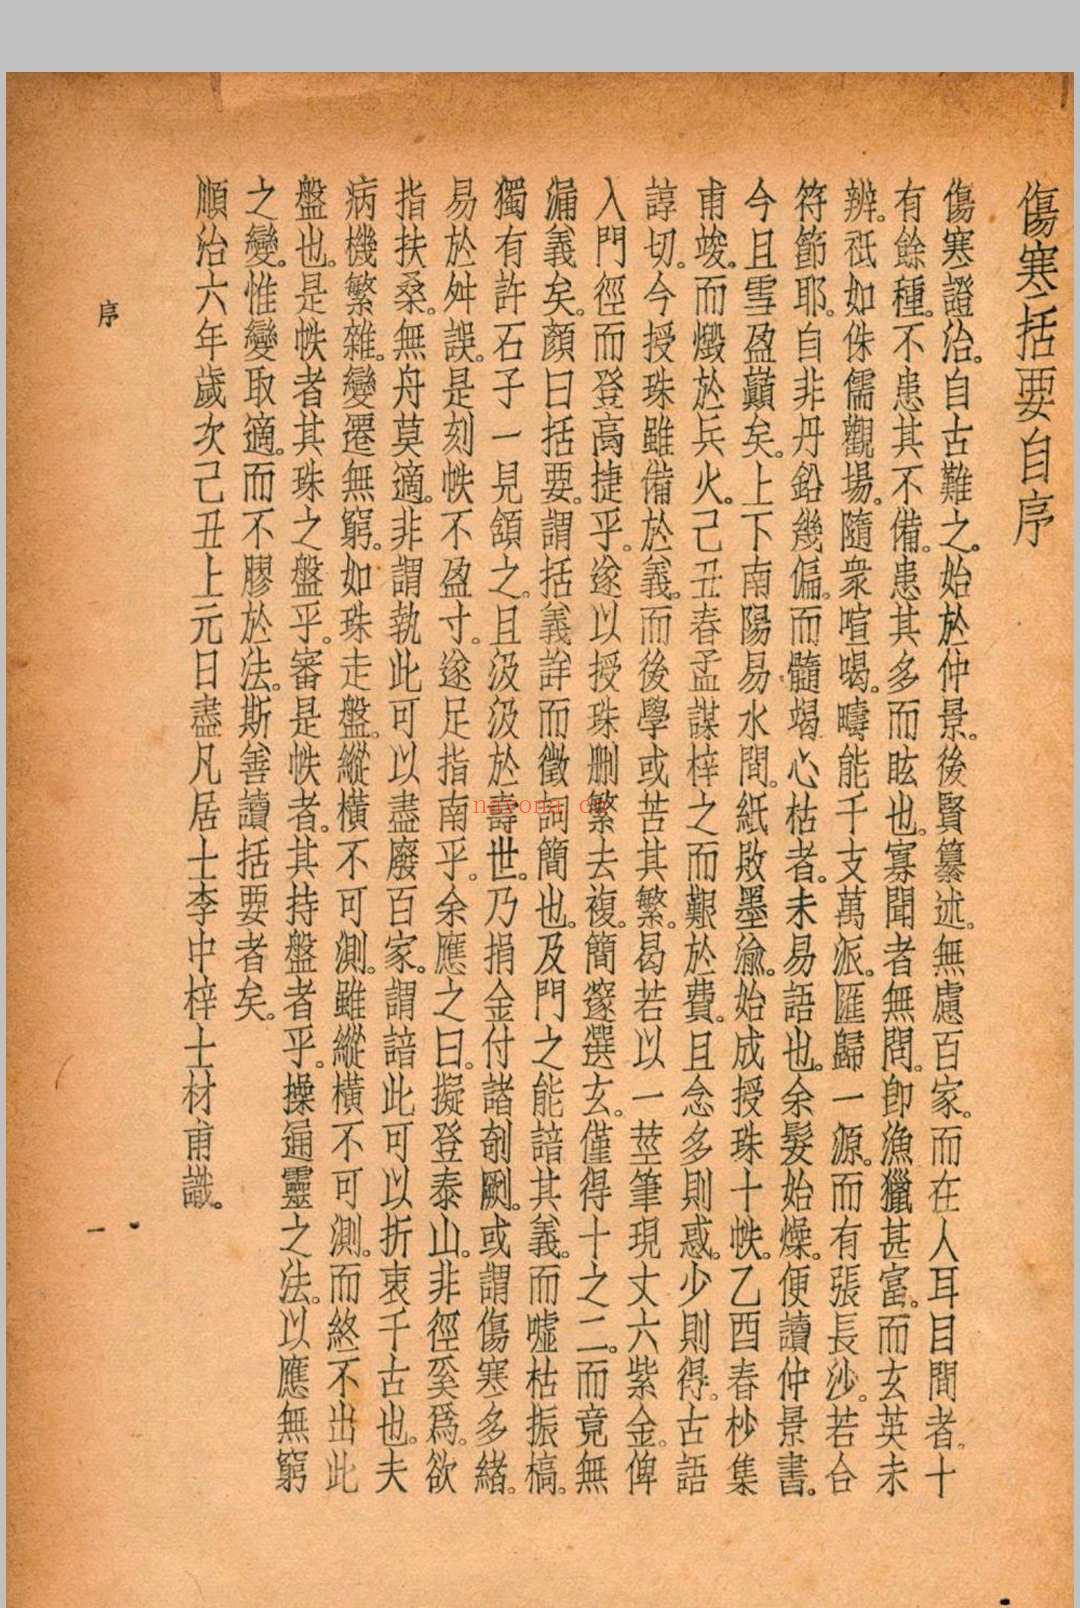 傷寒括要自序
傷寒證治。自古難之。始於仲景。後賢纂述。無慮百家。而在人耳目間者。十
有餘種。不患其不備。患其多而眩也。寡聞者無問。卽漁獵甚富。而玄英未
辨。祇如侏儒觀場。隨衆喧喝。疇能千支萬派。匯歸一源。而有張長沙。若合
符節耶。自非丹鉛幾偏。而髓竭心枯者。未易語也。余髮始燥。便讀仲景書。
今且雪盈巔矣。上下南陽易水間。紙敗墨渝。始成授珠十帙。乙酉春杪集
甫竣。而燬於兵火。己丑春孟謀梓之而艱於費。且念多則惑。少則得。古語
諄切。今授珠雖備於義。而後學或苦其繁。曷若以一莖筆現丈六紫金。俾
入門徑而登高捷乎。遂以授珠刪繁去複。簡邃選玄。僅得十之二。而竟無
漏義矣。顏曰括要。謂括義詳而徵詞簡也。及門之能諳其義。而噓枯振槁。
獨有許石子一見領之。且汲汲於壽世。乃捐金付諸剞劂。或謂傷寒多緒。
易於舛誤。是刻帙不盈寸。遂足指南乎。余應之曰。擬登泰山。非徑奚爲。欲
指扶桑。無舟莫適。非謂執此可以盡廢百家。謂諳此可以折衷千古也。夫
病機繁雜。變遷無窮。如珠走盤。縱橫不可測。雖縱橫不可測。而終不出此
盤也。是帙者其珠之盤乎。審是帙者。其持盤者乎。操通靈之法。以應無窮
之變。惟變取適。而不膠於法。斯善讀括要者矣。
順治六年歲次己丑上元日盡凡居士李中梓士材甫識。
序
一
nayona.cn